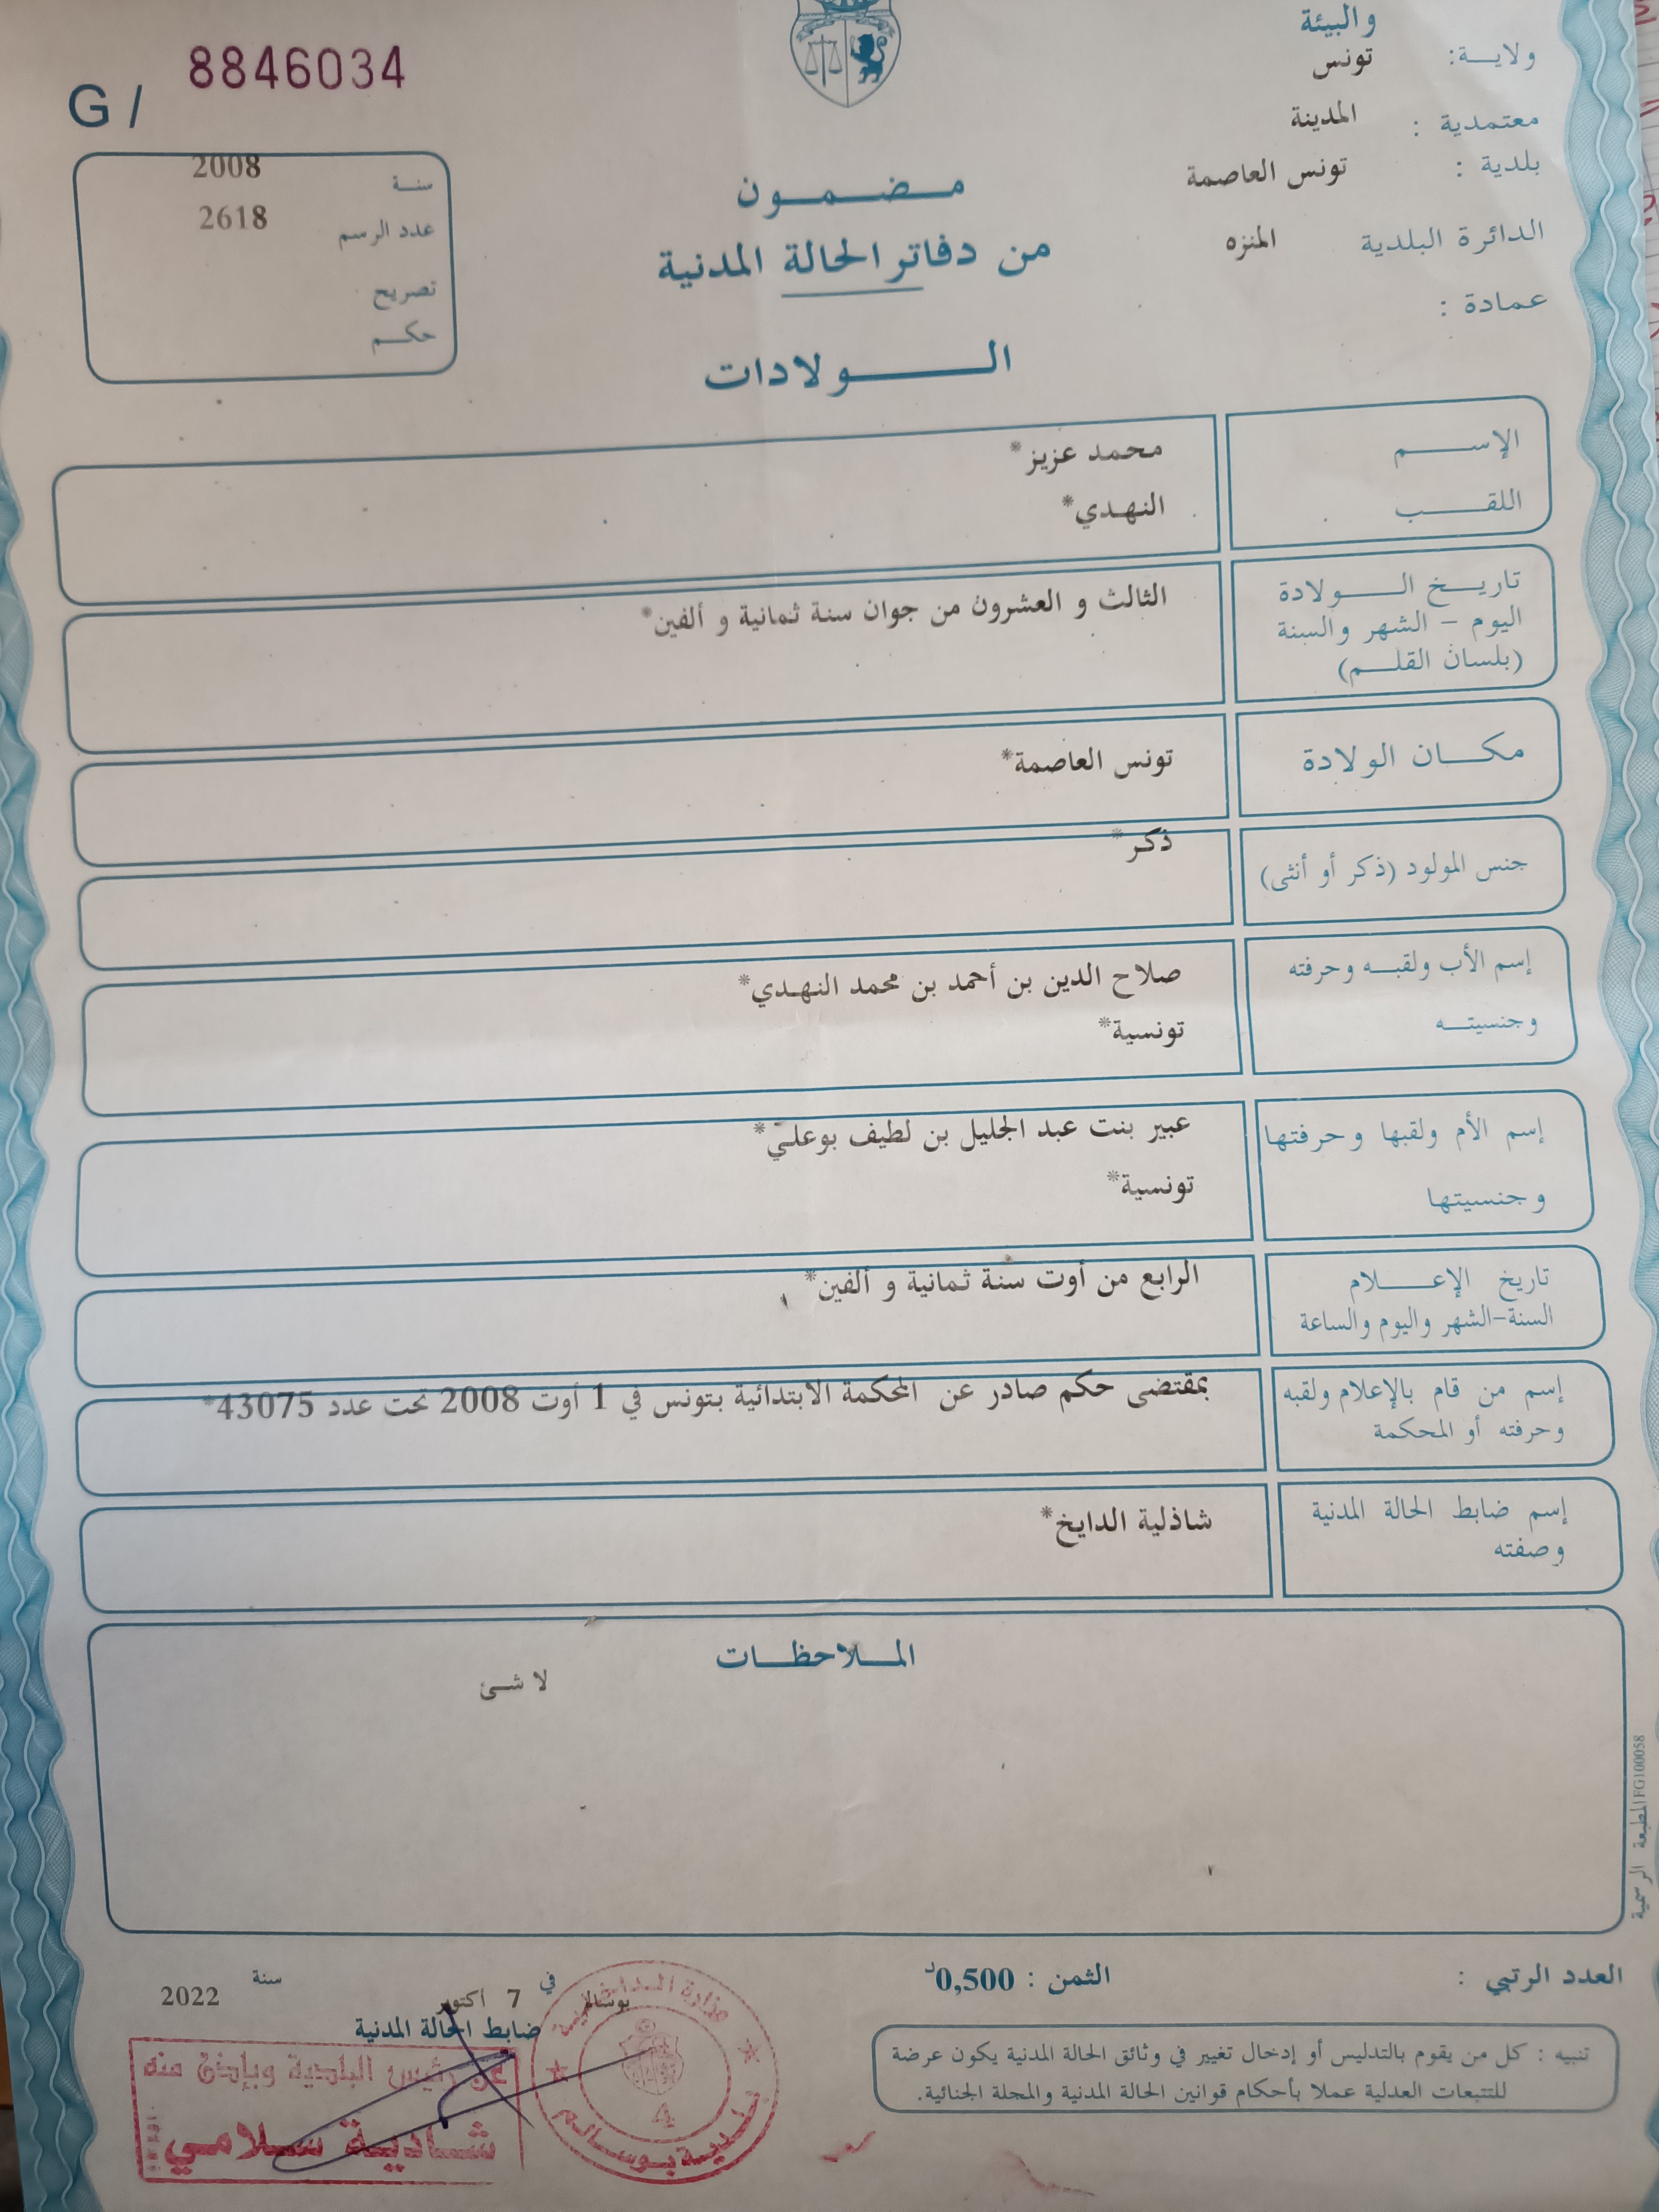 والبيئة
ولاية: تونس
معتمدية : المدينة
بلدية : تونس العاصمة
الدائرة البلدية المنزه
عمادة :
G / 8846034
سنة 2008
عدد الرسم 2618
تصريح
حكم
مضمون
من دفاتر الحالة المدنية
الولادات
الإسم محمد عزيز*
اللقب النهدي*
تاريخ الولادة
اليوم – الشهر والسنة
(بلسان القلم)
الثالث و العشرون من جوان سنة ثمانية و ألفين*
مكان الولادة تونس العاصمة*
جنس المولود (ذكر أو أنثى) ذكر*
إسم الأب ولقبه وحرفته صلاح الدين بن أحمد بن محمد النهدي*
وجنسيته تونسية*
إسم الأم ولقبها وحرفتها عبير بنت عبد الجليل بن لطيف بوعلي*
وجنسيتها تونسية*
تاريخ الإعلام
السنة-الشهر واليوم والساعة
الرابع من أوت سنة ثمانية و ألفين*
إسم من قام بالإعلام ولقبه
وحرفته أو المحكمة
بمقتضى حكم صادر عن المحكمة الابتدائية بتونس في 1 أوت 2008 تحت عدد 43075*
إسم ضابط الحالة المدنية
وصفته
شاذلية الدايخ*
الملاحظات
لا شئ
المطبعة الرسمية FG100058
العدد الرتبي :
الثمن : 0,500د
تنبيه : كل من يقوم بالتدليس أو إدخال تغيير في وثائق الحالة المدنية يكون عرضة
للتتبعات العدلية عملا بأحكام قوانين الحالة المدنية والمجلة الجنائية.
بوسالم في 7 أكتوبر سنة 2022
ضابط الحالة المدنية
عن رئيس البلدية وبإذن منه
شادية سلامي
وزارة الداخلية
بلدية بوسالم
4